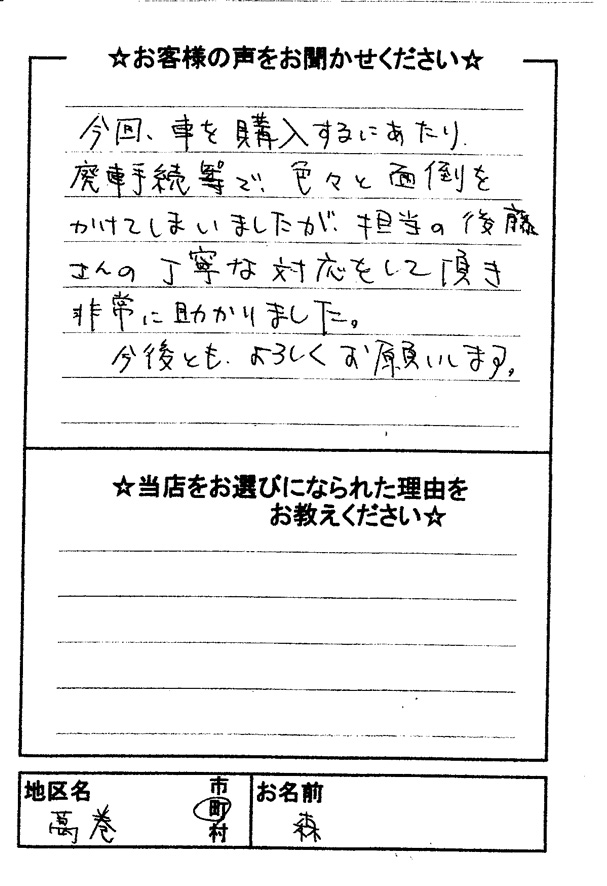 ☆お客様の声をお聞かせください☆
今回、車を購入するにあたり、
廃車手続等で、色々と面倒を
かけてしまいましたが、担当の後藤
さんの丁寧な対応をして頂き
非常に助かりました。
今後とも、よろしくお願いします。
☆当店をお選びになられた理由を
お教えください☆
地区名
市
町
村
お名前
森